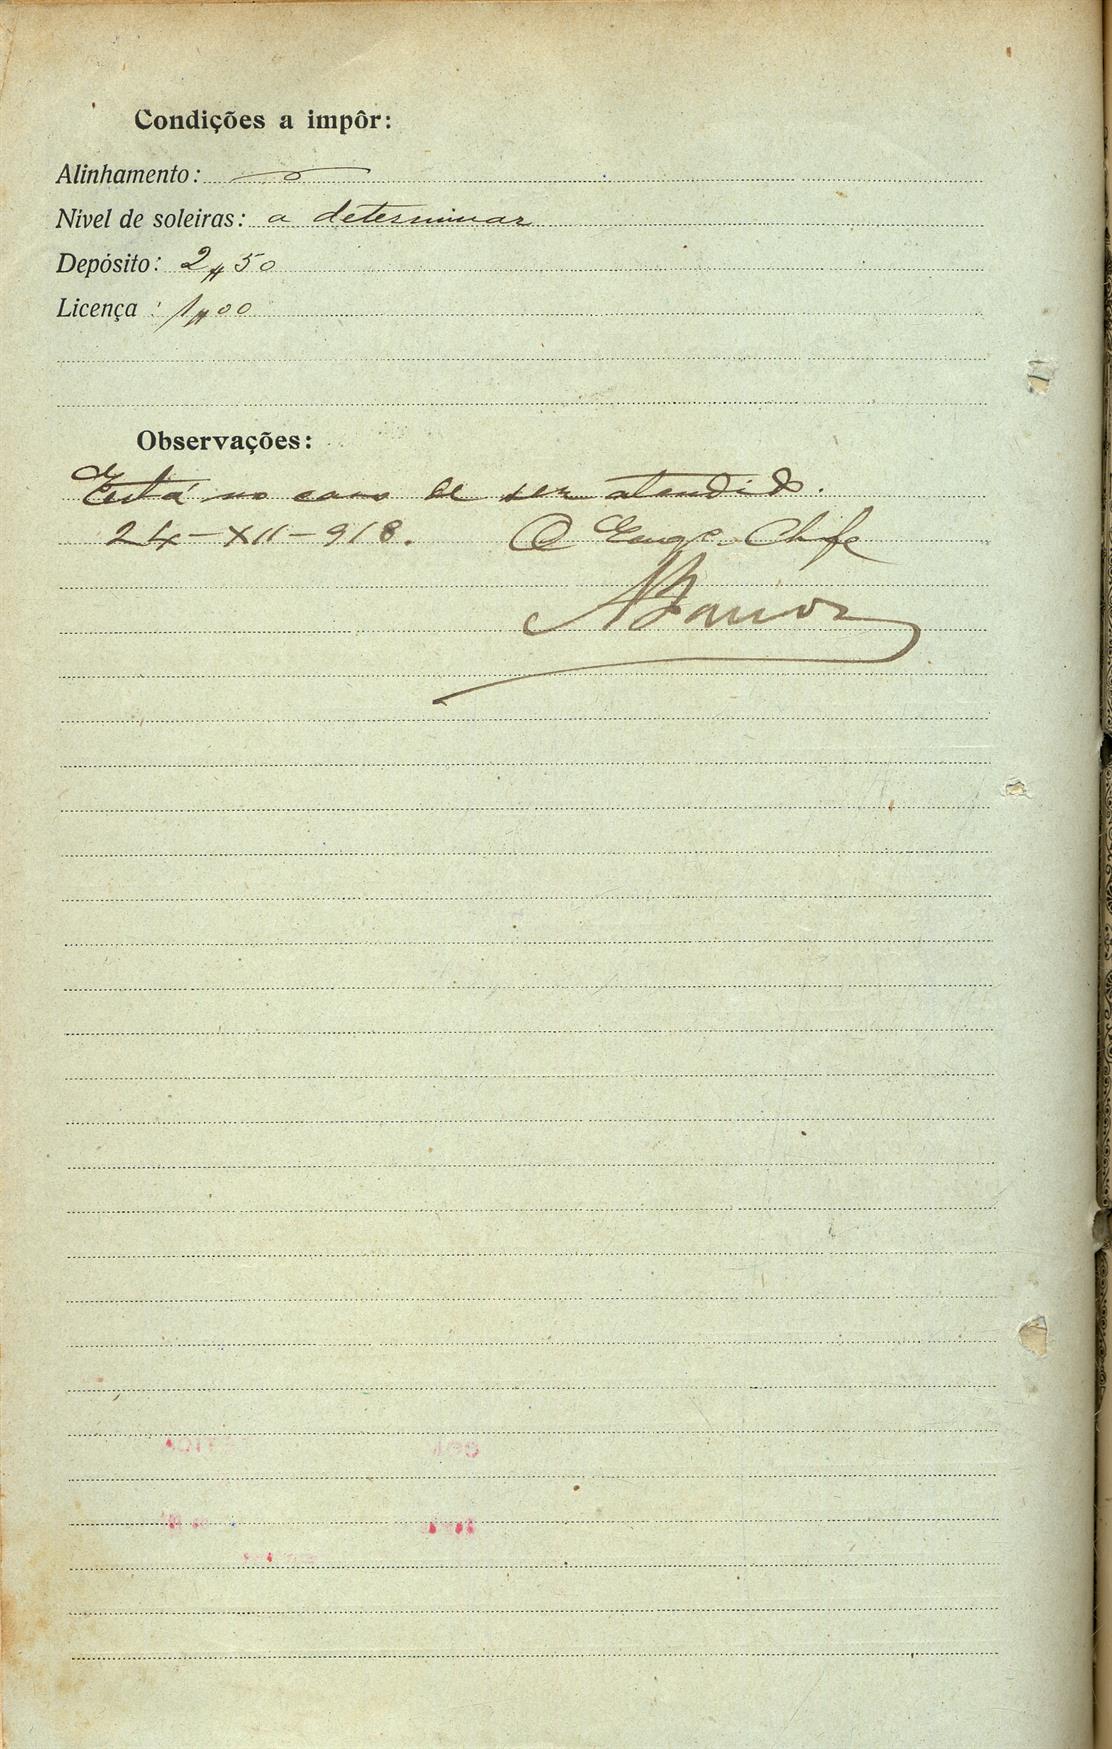 Condições a impôr:
Alinhamento:
Nivel de soleiras: a determinar
Depósito: 2$50
Licença : 1$00
Observações:
Está no caso de ser atendido.
24-XII-918. O Engº. Chefe